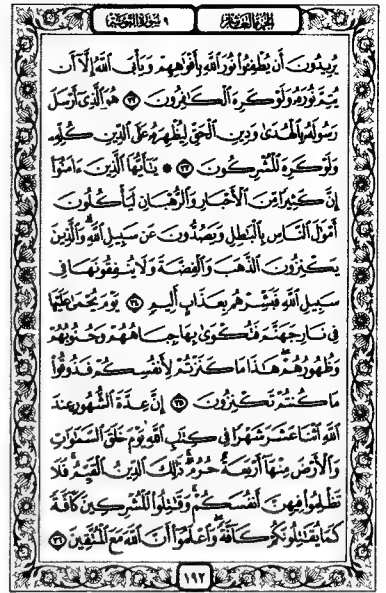 الجزء العاشر ٩ سورة التوبة
يُرِيدُونَ أَن يُطْفِـُٔوا۟ نُورَ ٱللَّهِ بِأَفْوَٰهِهِمْ وَيَأْبَى ٱللَّهُ إِلَّآ أَن
يُتِمَّ نُورَهُۥ وَلَوْ كَرِهَ ٱلْكَٰفِرُونَ ٣٢ هُوَ ٱلَّذِىٓ أَرْسَلَ
رَسُولَهُۥ بِٱلْهُدَىٰ وَدِينِ ٱلْحَقِّ لِيُظْهِرَهُۥ عَلَى ٱلدِّينِ كُلِّهِۦ
وَلَوْ كَرِهَ ٱلْمُشْرِكُونَ ٣٣ ۞ يَٰٓأَيُّهَا ٱلَّذِينَ ءَامَنُوٓا۟
إِنَّ كَثِيرًا مِّنَ ٱلْأَحْبَارِ وَٱلرُّهْبَانِ لَيَأْكُلُونَ
أَمْوَٰلَ ٱلنَّاسِ بِٱلْبَٰطِلِ وَيَصُدُّونَ عَن سَبِيلِ ٱللَّهِ ۗ وَٱلَّذِينَ
يَكْنِزُونَ ٱلذَّهَبَ وَٱلْفِضَّةَ وَلَا يُنفِقُونَهَا فِى
سَبِيلِ ٱللَّهِ فَبَشِّرْهُم بِعَذَابٍ أَلِيمٍ ٣٤ يَوْمَ يُحْمَىٰ عَلَيْهَا
فِى نَارِ جَهَنَّمَ فَتُكْوَىٰ بِهَا جِبَاهُهُمْ وَجُنُوبُهُمْ
وَظُهُورُهُمْ ۖ هَٰذَا مَا كَنَزْتُمْ لِأَنفُسِكُمْ فَذُوقُوا۟
مَا كُنتُمْ تَكْنِزُونَ ٣٥ إِنَّ عِدَّةَ ٱلشُّهُورِ عِندَ
ٱللَّهِ ٱثْنَا عَشَرَ شَهْرًا فِى كِتَٰبِ ٱللَّهِ يَوْمَ خَلَقَ ٱلسَّمَٰوَٰتِ
وَٱلْأَرْضَ مِنْهَآ أَرْبَعَةٌ حُرُمٌ ۚ ذَٰلِكَ ٱلدِّينُ ٱلْقَيِّمُ ۚ فَلَا
تَظْلِمُوا۟ فِيهِنَّ أَنفُسَكُمْ ۚ وَقَٰتِلُوا۟ ٱلْمُشْرِكِينَ كَآفَّةً
كَمَا يُقَٰتِلُونَكُمْ كَآفَّةً ۚ وَٱعْلَمُوٓا۟ أَنَّ ٱللَّهَ مَعَ ٱلْمُتَّقِينَ ٣٦
١٩٢